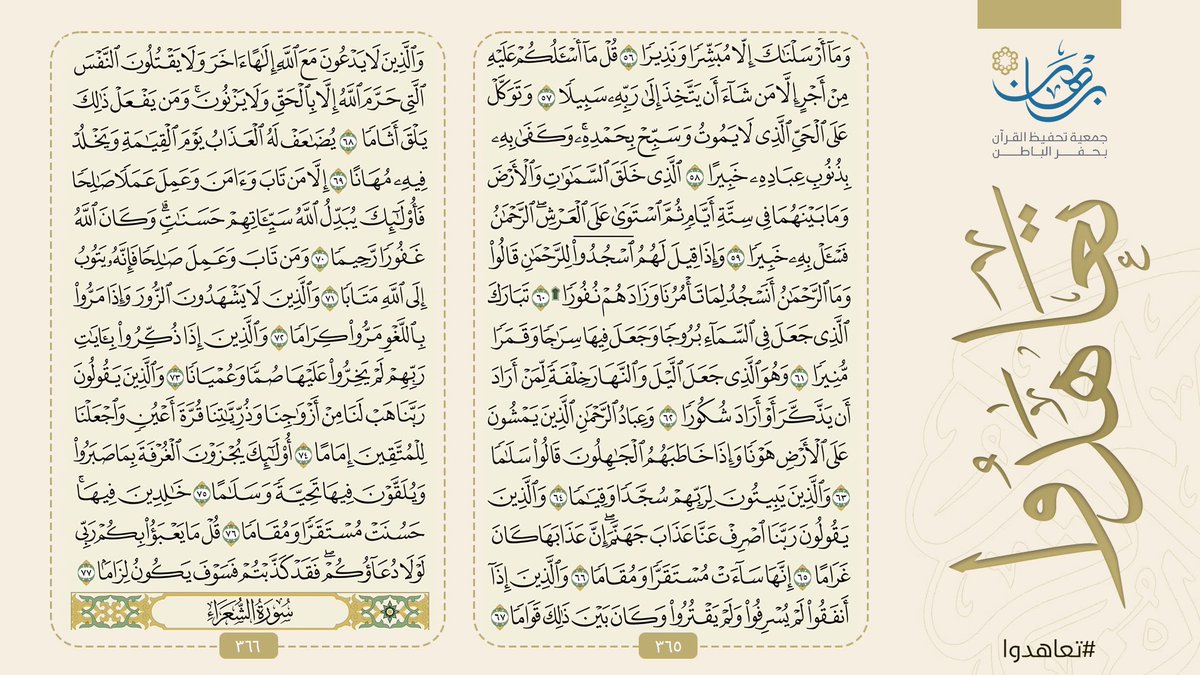 وَمَآ أَرۡسَلۡنَٰكَ إِلَّا مُبَشِّرٗا وَنَذِيرٗا ٥٦ قُلۡ مَآ أَسۡـَٔلُكُمۡ عَلَيۡهِ
مِنۡ أَجۡرٍ إِلَّا مَن شَآءَ أَن يَتَّخِذَ إِلَىٰ رَبِّهِۦ سَبِيلٗا ٥٧ وَتَوَكَّلۡ
عَلَى ٱلۡحَيِّ ٱلَّذِي لَا يَمُوتُ وَسَبِّحۡ بِحَمۡدِهِۦۚ وَكَفَىٰ بِهِۦ
بِذُنُوبِ عِبَادِهِۦ خَبِيرًا ٥٨ ٱلَّذِي خَلَقَ ٱلسَّمَٰوَٰتِ وَٱلۡأَرۡضَ
وَمَا بَيۡنَهُمَا فِي سِتَّةِ أَيَّامٖ ثُمَّ ٱسۡتَوَىٰ عَلَى ٱلۡعَرۡشِۖ ٱلرَّحۡمَٰنُ
فَسۡـَٔلۡ بِهِۦ خَبِيرٗا ٥٩ وَإِذَا قِيلَ لَهُمُ ٱسۡجُدُواْ لِلرَّحۡمَٰنِ قَالُواْ
وَمَا ٱلرَّحۡمَٰنُ أَنَسۡجُدُ لِمَا تَأۡمُرُنَا وَزَادَهُمۡ نُفُورٗا۩ ٦٠ تَبَارَكَ
ٱلَّذِي جَعَلَ فِي ٱلسَّمَآءِ بُرُوجٗا وَجَعَلَ فِيهَا سِرَٰجٗا وَقَمَرٗا
مُّنِيرٗا ٦١ وَهُوَ ٱلَّذِي جَعَلَ ٱلَّيۡلَ وَٱلنَّهَارَ خِلۡفَةٗ لِّمَنۡ أَرَادَ
أَن يَذَّكَّرَ أَوۡ أَرَادَ شُكُورٗا ٦٢ وَعِبَادُ ٱلرَّحۡمَٰنِ ٱلَّذِينَ يَمۡشُونَ
عَلَى ٱلۡأَرۡضِ هَوۡنٗا وَإِذَا خَاطَبَهُمُ ٱلۡجَٰهِلُونَ قَالُواْ سَلَٰمٗا
٦٣ وَٱلَّذِينَ يَبِيتُونَ لِرَبِّهِمۡ سُجَّدٗا وَقِيَٰمٗا ٦٤ وَٱلَّذِينَ
يَقُولُونَ رَبَّنَا ٱصۡرِفۡ عَنَّا عَذَابَ جَهَنَّمَۖ إِنَّ عَذَابَهَا كَانَ
غَرَامًا ٦٥ إِنَّهَا سَآءَتۡ مُسۡتَقَرّٗا وَمُقَامٗا ٦٦ وَٱلَّذِينَ إِذَآ
أَنفَقُواْ لَمۡ يُسۡرِفُواْ وَلَمۡ يَقۡتُرُواْ وَكَانَ بَيۡنَ ذَٰلِكَ قَوَامٗا ٦٧
٣٦٥
وَٱلَّذِينَ لَا يَدۡعُونَ مَعَ ٱللَّهِ إِلَٰهًا ءَاخَرَ وَلَا يَقۡتُلُونَ ٱلنَّفۡسَ
ٱلَّتِي حَرَّمَ ٱللَّهُ إِلَّا بِٱلۡحَقِّ وَلَا يَزۡنُونَۚ وَمَن يَفۡعَلۡ ذَٰلِكَ
يَلۡقَ أَثَامٗا ٦٨ يُضَٰعَفۡ لَهُ ٱلۡعَذَابُ يَوۡمَ ٱلۡقِيَٰمَةِ وَيَخۡلُدۡ
فِيهِۦ مُهَانًا ٦٩ إِلَّا مَن تَابَ وَءَامَنَ وَعَمِلَ عَمَلٗا صَٰلِحٗا
فَأُوْلَٰٓئِكَ يُبَدِّلُ ٱللَّهُ سَيِّـَٔاتِهِمۡ حَسَنَٰتٖۗ وَكَانَ ٱللَّهُ
غَفُورٗا رَّحِيمٗا ٧٠ وَمَن تَابَ وَعَمِلَ صَٰلِحٗا فَإِنَّهُۥ يَتُوبُ
إِلَى ٱللَّهِ مَتَابٗا ٧١ وَٱلَّذِينَ لَا يَشۡهَدُونَ ٱلزُّورَ وَإِذَا مَرُّواْ
بِٱللَّغۡوِ مَرُّواْ كِرَامٗا ٧٢ وَٱلَّذِينَ إِذَا ذُكِّرُواْ بِـَٔايَٰتِ
رَبِّهِمۡ لَمۡ يَخِرُّواْ عَلَيۡهَا صُمّٗا وَعُمۡيَانٗا ٧٣ وَٱلَّذِينَ يَقُولُونَ
رَبَّنَا هَبۡ لَنَا مِنۡ أَزۡوَٰجِنَا وَذُرِّيَّٰتِنَا قُرَّةَ أَعۡيُنٖ وَٱجۡعَلۡنَا
لِلۡمُتَّقِينَ إِمَامًا ٧٤ أُوْلَٰٓئِكَ يُجۡزَوۡنَ ٱلۡغُرۡفَةَ بِمَا صَبَرُواْ
وَيُلَقَّوۡنَ فِيهَا تَحِيَّةٗ وَسَلَٰمًا ٧٥ خَٰلِدِينَ فِيهَاۚ
حَسُنَتۡ مُسۡتَقَرّٗا وَمُقَامٗا ٧٦ قُلۡ مَا يَعۡبَؤُاْ بِكُمۡ رَبِّي
لَوۡلَا دُعَآؤُكُمۡۖ فَقَدۡ كَذَّبۡتُمۡ فَسَوۡفَ يَكُونُ لِزَامَۢا ٧٧
سُورَةُ الشُّعَرَاءِ
٣٦٦
برهان
جمعية تحفيظ القرآن
بحفر الباطن
تعاهدوا
#تعاهدوا